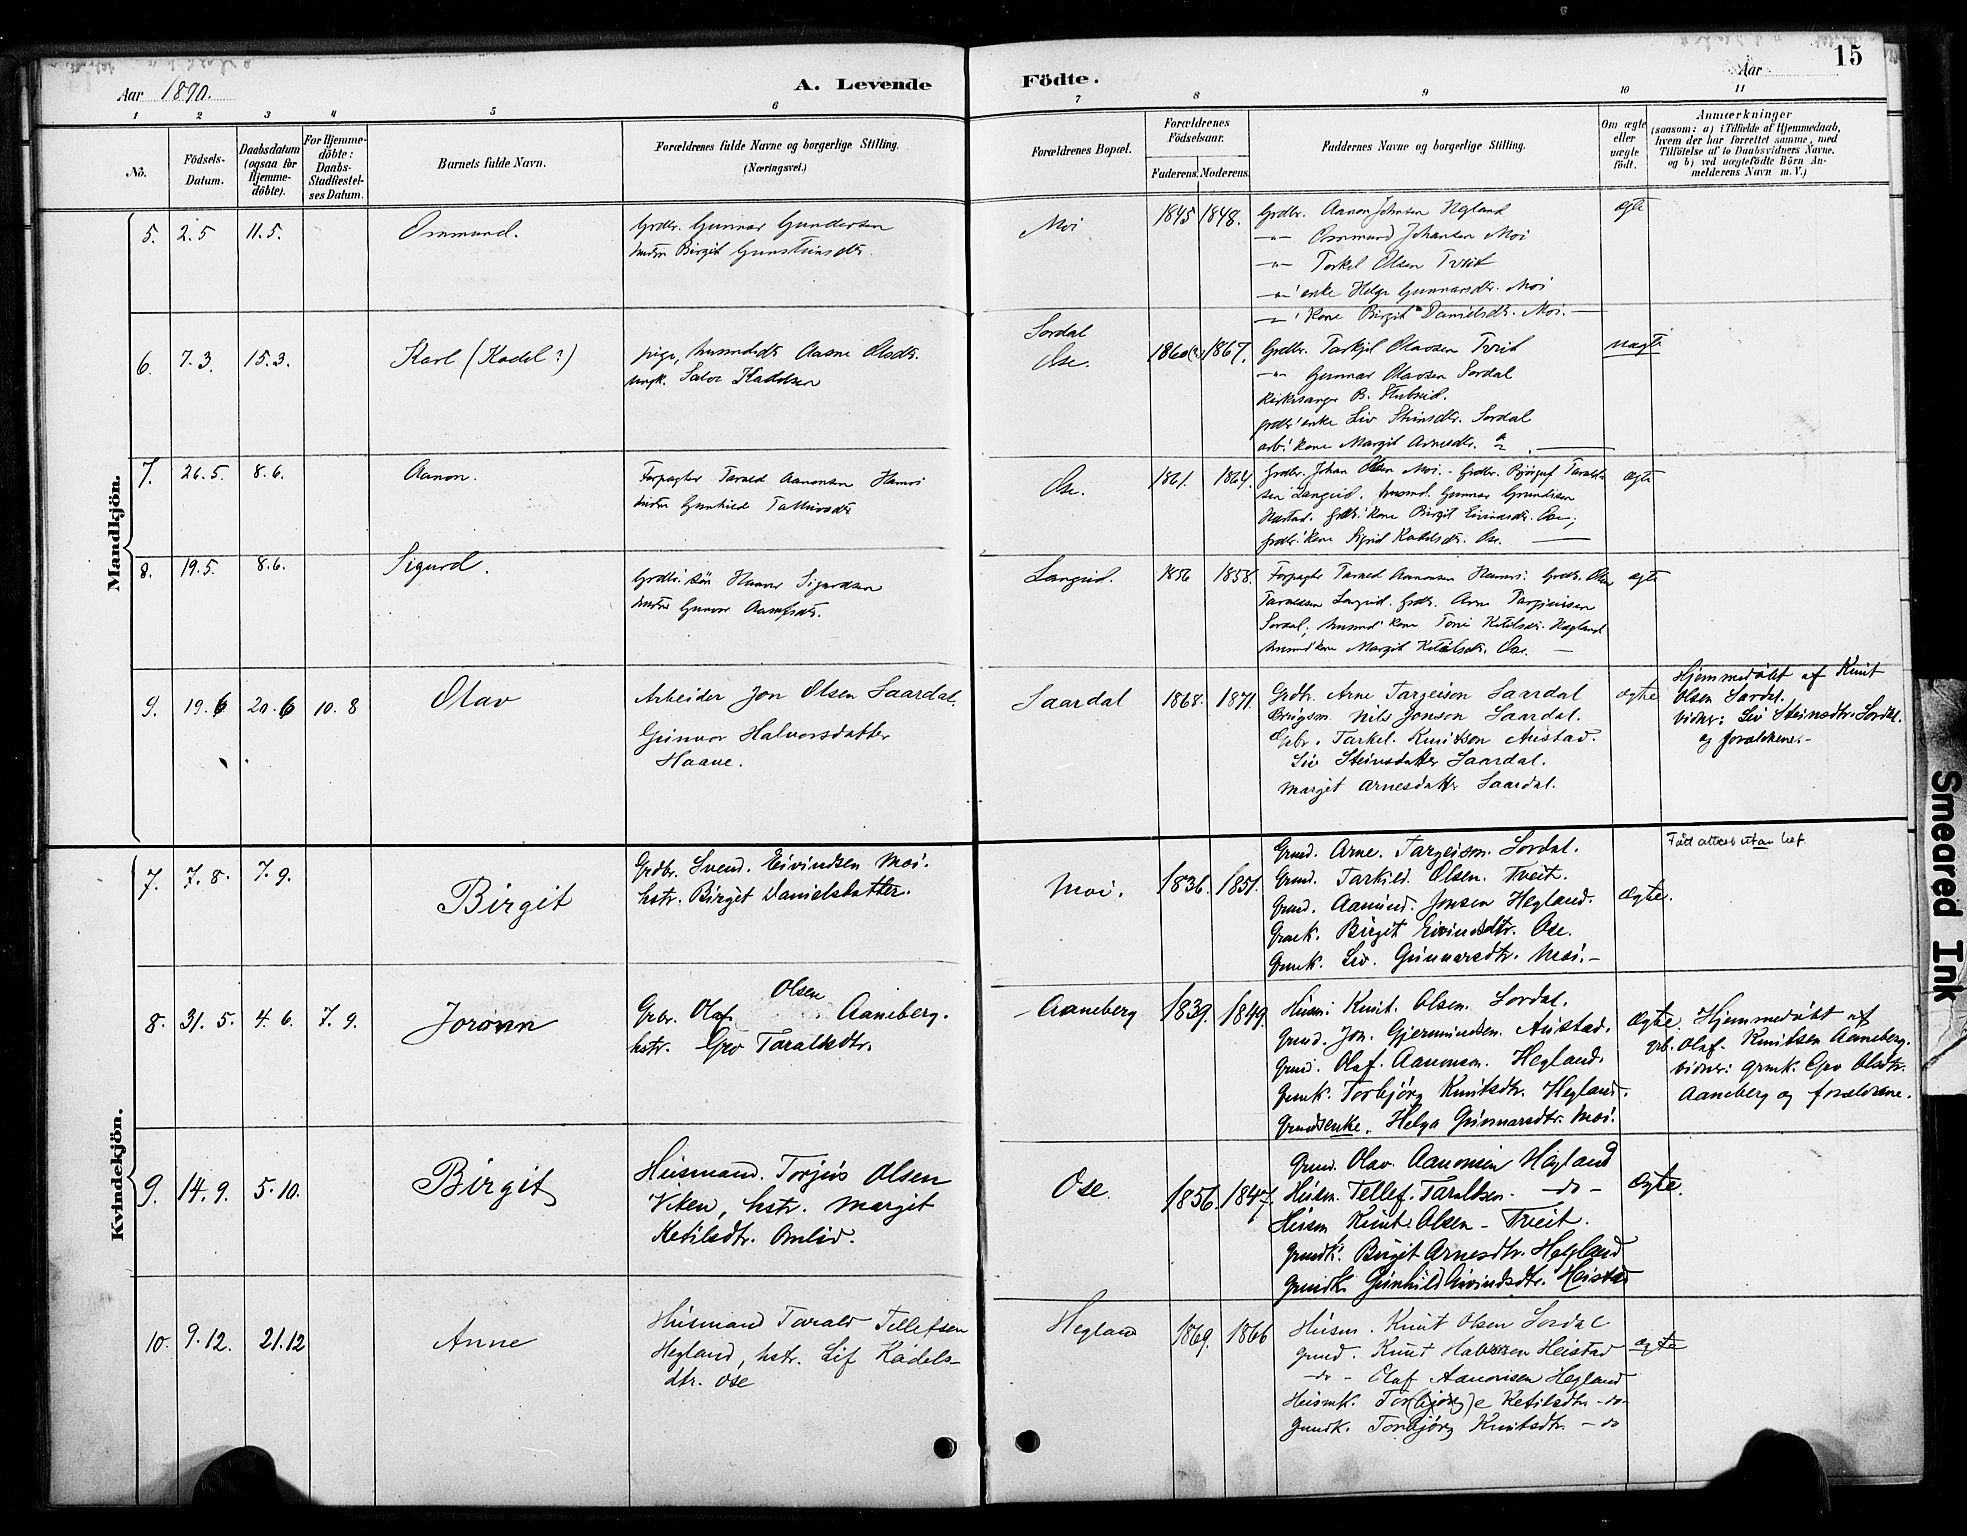 15
Aar 1890.
A. Levende
Födte.
Aar
1 2 3 4 5 6 7 8 9 10 11
No.
Födsels-
Datum.
Daabsdatum
(ogsaa for
Hjemme-
döbte).
For Hjemme-
döbte:
Daabs-
Stadfæstel-
ses Datum.
Barnets fulde Navn.
Forældrenes fulde Navne og borgerlige Stilling.
(Næringsvei.)
Forældrenes Bopæl.
Forældrenes
Födselsaar.
Faderens. Moderens.
Faddernes Navne og borgerlige Stilling.
Om ægte
eller
uægte
födt.
Anmærkninger
(saasom: a) i Tilfælde af Hjemmedaab,
hvem der har forrettet samme, med
Tilföielse af to Daabsvidners Navne,
og b) ved uægtefödte Börn An-
melderens Navn m. V.)
Mandkjön.
5. 2.5 11.5. Ommund.
Grdbr. Gunnar Gundersen
hustru Birgit
Moi 1845 1848.
Grdbr. Aanon Johnsen Hegland
-"- Ommund Johansen Moi
-"- Torkel Olsen Tveit
-"- enke Helge Gunnarsdtr. Moi
-"- kone Birgit Danielsdtr. Moi.
ægte
6. 7.3. 15.3. Karl (Kadel?)
pige, Aasne Olsdtr.
ungk. Salve Kadelsen
Sordal
Ose. 1860(?) 1867.
Grdbr. Tarkjel Olavsen Tveit
-"- Gunnar Olavsen Sordal
Kirkesanger B. Stubseid.
grdbr enke Liv Steinsdtr. Sordal
arb. kone Margit Arnesdtr. "
uægte
7. 26.5. 8.6. Aanon.
Forpagter Tarald Aanonsen Hamri
hustru Gunhild
Ose. 1861. 1864.
Grdbr. Johan Olsen Moi. - Grdbr. Bjørguf Taralds-
sen Langeid. husmd. Gunnar
grdbr. kone Birgit Eivindsdtr. Ose;
grdbr. kone Sigrid Kadelsdtr. Ose.
ægte
8. 19.5. 8.6. Sigurd.
Grdbr. søn Sigurdsen
hustru Gunvor
Langeid. 1856 1858.
Forpagter Tarald Aanonsen Hamri. Grdbr. Olav
Taraldsen Langeid. Grdbr. Arne Targeirsen
Sordal, husmd. kone Tone Ketilsdtr. Hegland
husmd. kone Margit Ketilsdtr. Ose.
ægte
9. 19.6 20.6 10.8 Olav
Arbeider Jon Olsen Saardal.
Gunvor Halvorsdatter
Haave.
Saardal 1868. 1871.
Grdbr. Arne Targeison Saardal
Brugsm. Nils Jonson Saardal.
Gbr. Tarkel Knutson Austad.
Liv Steinsdatter Saardal.
Margit Arnesdatter Saardal.
ægte
Hjemmedøbt af Knut
Olsen Sordal.
Vidner: Liv Steinsdtr. Sordal.
og forældrene.-
Kvindekjön.
7. 7.8. 7.9. Birgit
Grdbr. Svend. Eivindsen Moi.
hstr. Birgit Danielsdatter.
Moi. 1836. 1851.
Grmd. Arne. Targeison. Sordal.
Grmd. Tarkild. Olsen. Tveit.
Grmd. Aamund. Jonsen Hegland.
Grmk. Birgit Eivindsdtr. Ose.
Grmk. Liv. Gunnarsdtr. Moi.-
Ægte.
Født attest utan bef.
8. 31.5. 4.6. 7.9. Jorønn
Grbr. Olaf Olsen Aaneberg.
hstr. Gro Taraldsdtr.
Aaneberg 1839. 1849.
Husm: Knut. Olsen. Sordal.
Grmd. Jon. Gjermundsen. Austad.
Grmd. Olaf. Aanonsen. Hegland.
Grmk. Torbjørg Knutsdtr. Hegland.
Grmdsenke. Helga Gunnarsdtr. Moi.
Ægte.
Hjemmedøbt af
Olaf. Knutsen Aaneberg.
Vidner: grmk. Gro Olsdtr.
Aaneberg og forældrene.
9. 14.9. 5.10. Birgit
Husmand. Torjus Olsen
Viken, hstr. Margit
Ketilsdtr. Omlid.
Ose 1856. 1847.
Grmd. Olav. Aanonsen Hegland
Husm. Tellef. Taraldsen. - do -
Husm Knut. Olsen - Tveit.
Grmdk. Birgit Arnesdtr. Hegland
Grmdk Gunhild Eivindsdtr. Heistad
Ægte.
10. 9.12. 21.12 Anne
Husmand Tarald Tellefsen
Hegland, hstr. Lif Kadels-
dtr. Ose
Hegland 1869. 1866
Husm. Knut Olsen Sordal
grmd. Knut Halvorsen Heistad
- do - Olaf Aanonsen Hegland
Husmk. Tor(bjørg)e Ketilsdtr - do -
Grmdk. Torbjørg Knutsdtr. - do
ægte
Smeared Ink